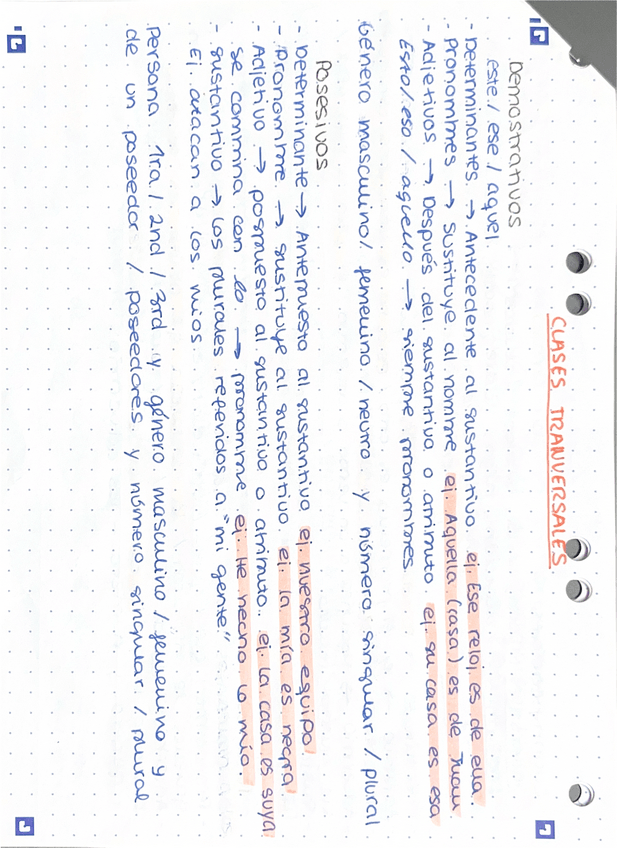 CLASES TRANVERSALES
Demostrativos
este / ese / aquel
- Determinantes → Antecedente al sustantivo ej. Ese reloj es de ella.
- Pronombres → Sustituye al nombre ej. Aquella (casa) es de Juan
- Adjetivos → Después del sustantivo o atributo ej. su casa es esa
Esto / eso / aquello → siempre pronombres
Género masculino / femenino / neutro y número singular / plural
Posesivos
- Determinante → Antepuesto al sustantivo ej. nuestro equipo
- Pronombre → sustituye al sustantivo ej. la mía es negra
- Adjetivo → pospuesto al sustantivo o atributo. ej. La casa es suya
se combina con lo → pronombre ej. He hecho lo mío.
- sustantivo → Los plurales referidos a "mi gente"
Ej. atacan a los míos.
Persona 1ra / 2nd / 3rd y género masculino / femenino y
de un poseedor / poseedores y número singular / plural